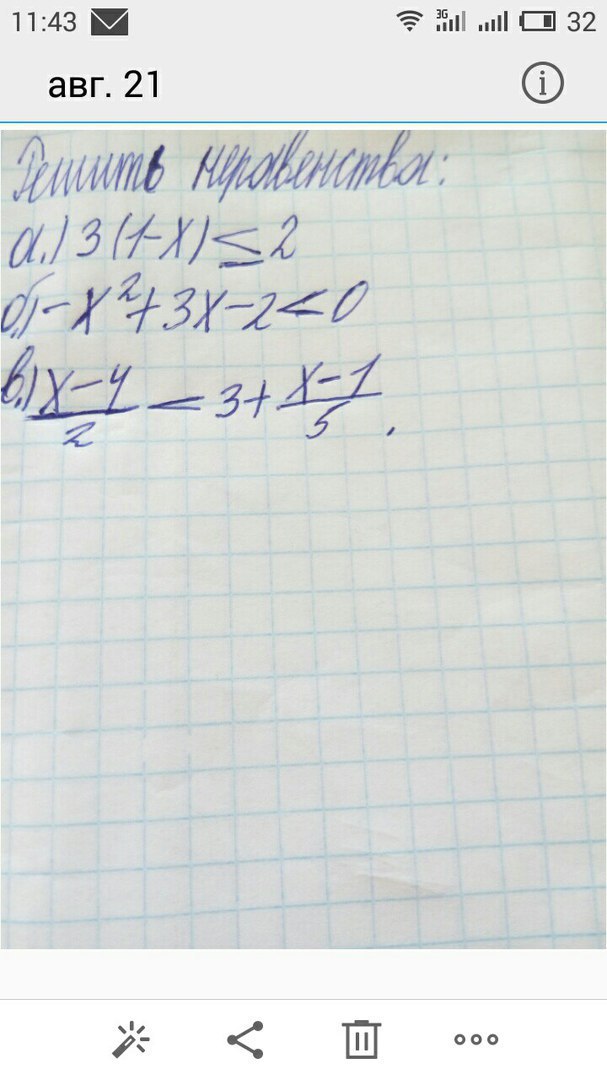 11:43 3G 32
авг. 21
Решить неравенства:
а.) 3(1-x) ≤ 2
б.) -x² + 3x - 2 < 0
в.) x-4/2 < 3 + x-1/5 .